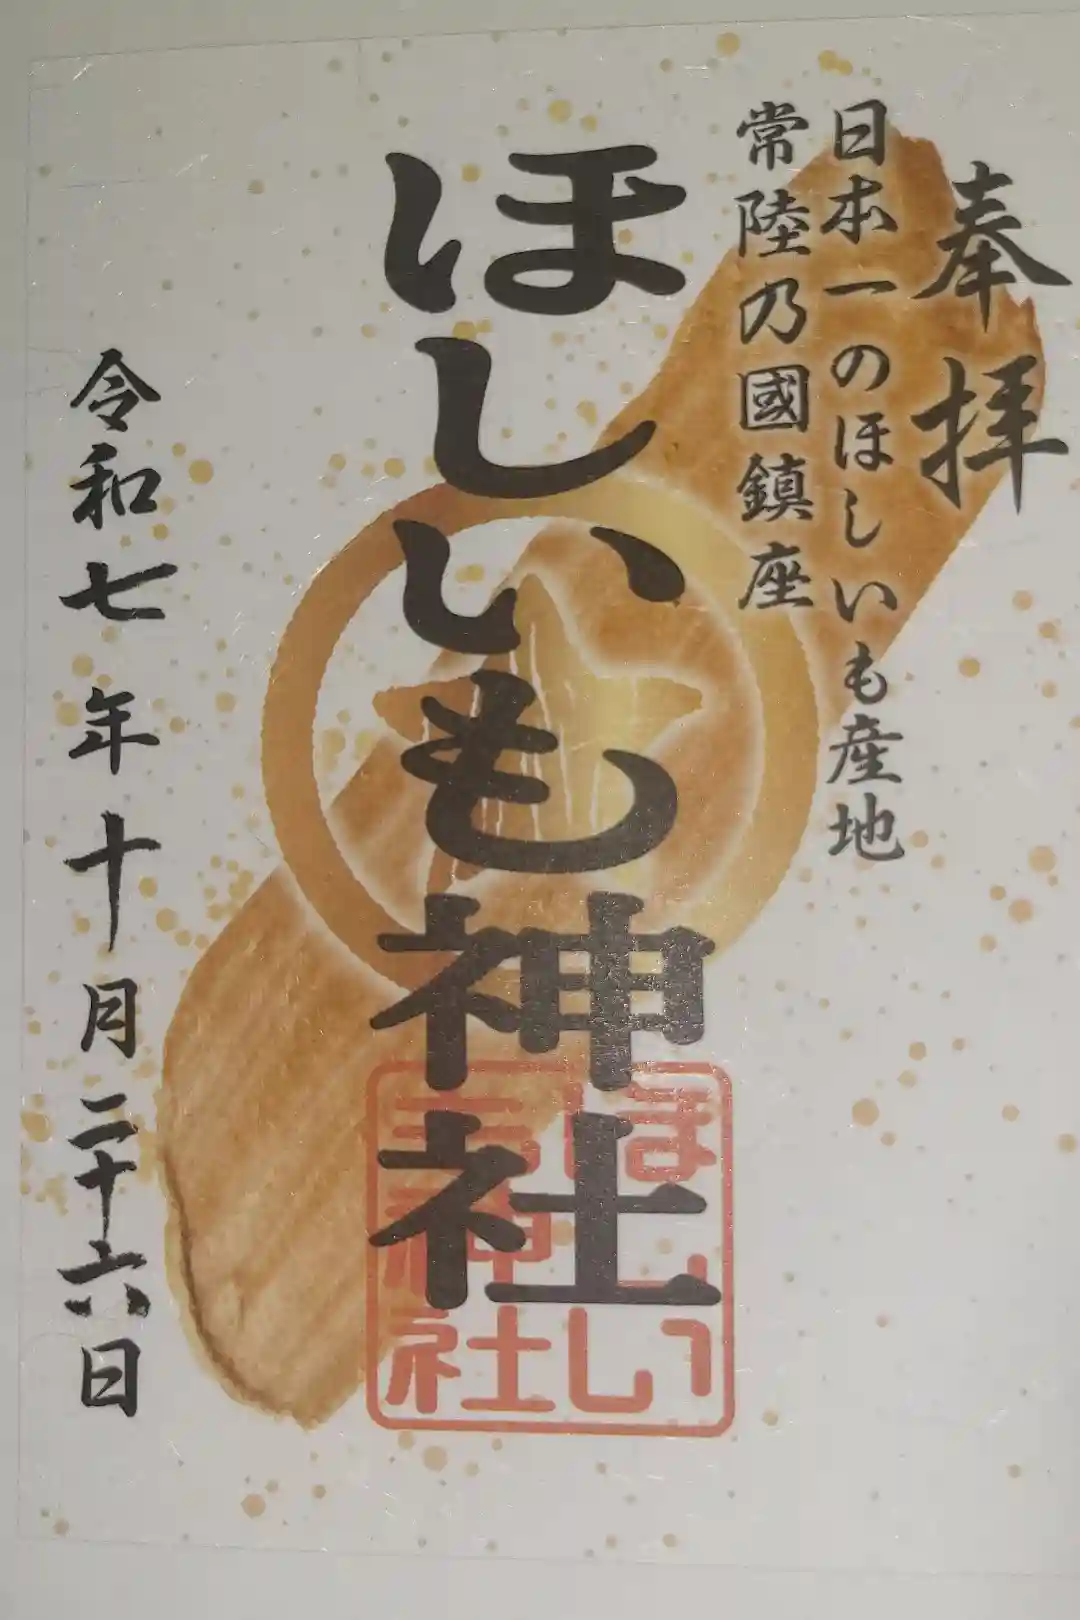 奉拝
日本一のほしいも産地
常陸乃國鎮座
ほしいも神社
ほしい
も神社
令和七年十月二十六日